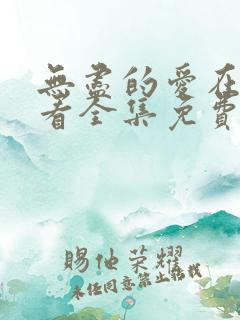 無盡的愛在
看全集免費
賜他荣耀
未经同意禁止轉載